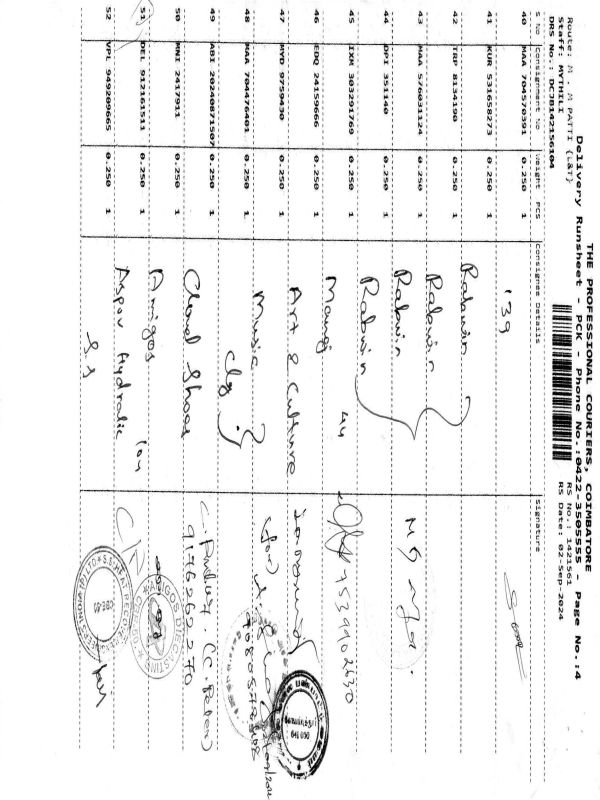 THE PROFESSIONAL COURIERS, COIMBATORE
Delivery Runsheet - PCK - Phone No.:0422-3505555 - Page No.:4
Route: M . M PATTI {L&T}
RS No.: 1421561
Staff: MYTHILI
RS Date: 02-Sep-2024
DRS No.: DCJB142156104
S No Consignment No Weight PCS Consignee Details Signature
40 MAA 704570391 0.250 1 139
41 KUR 531658273 0.250 1 Rabwin
42 TRP 8134190 0.250 1 Rabwin
43 MAA 576031124 0.250 1 Rabwin
44 DPI 351140 0.250 1 Rabwin
45 IXM 303291769 0.250 1 Manoj 44 9539902630
46 EDQ 24159666 0.250 1 Art & Culture
47 MYD 9759430 0.250 1 Music
48 MAA 704476401 0.250 1 Clg
49 ABI 20240871507 0.250 1 Chenel Shoes 9176262270
50 MNI 2417911 0.250 1 Amigos
51 DEL 912161511 0.250 1 Aspou Hydralic
52 VPL 949209665 0.250 1 S.S